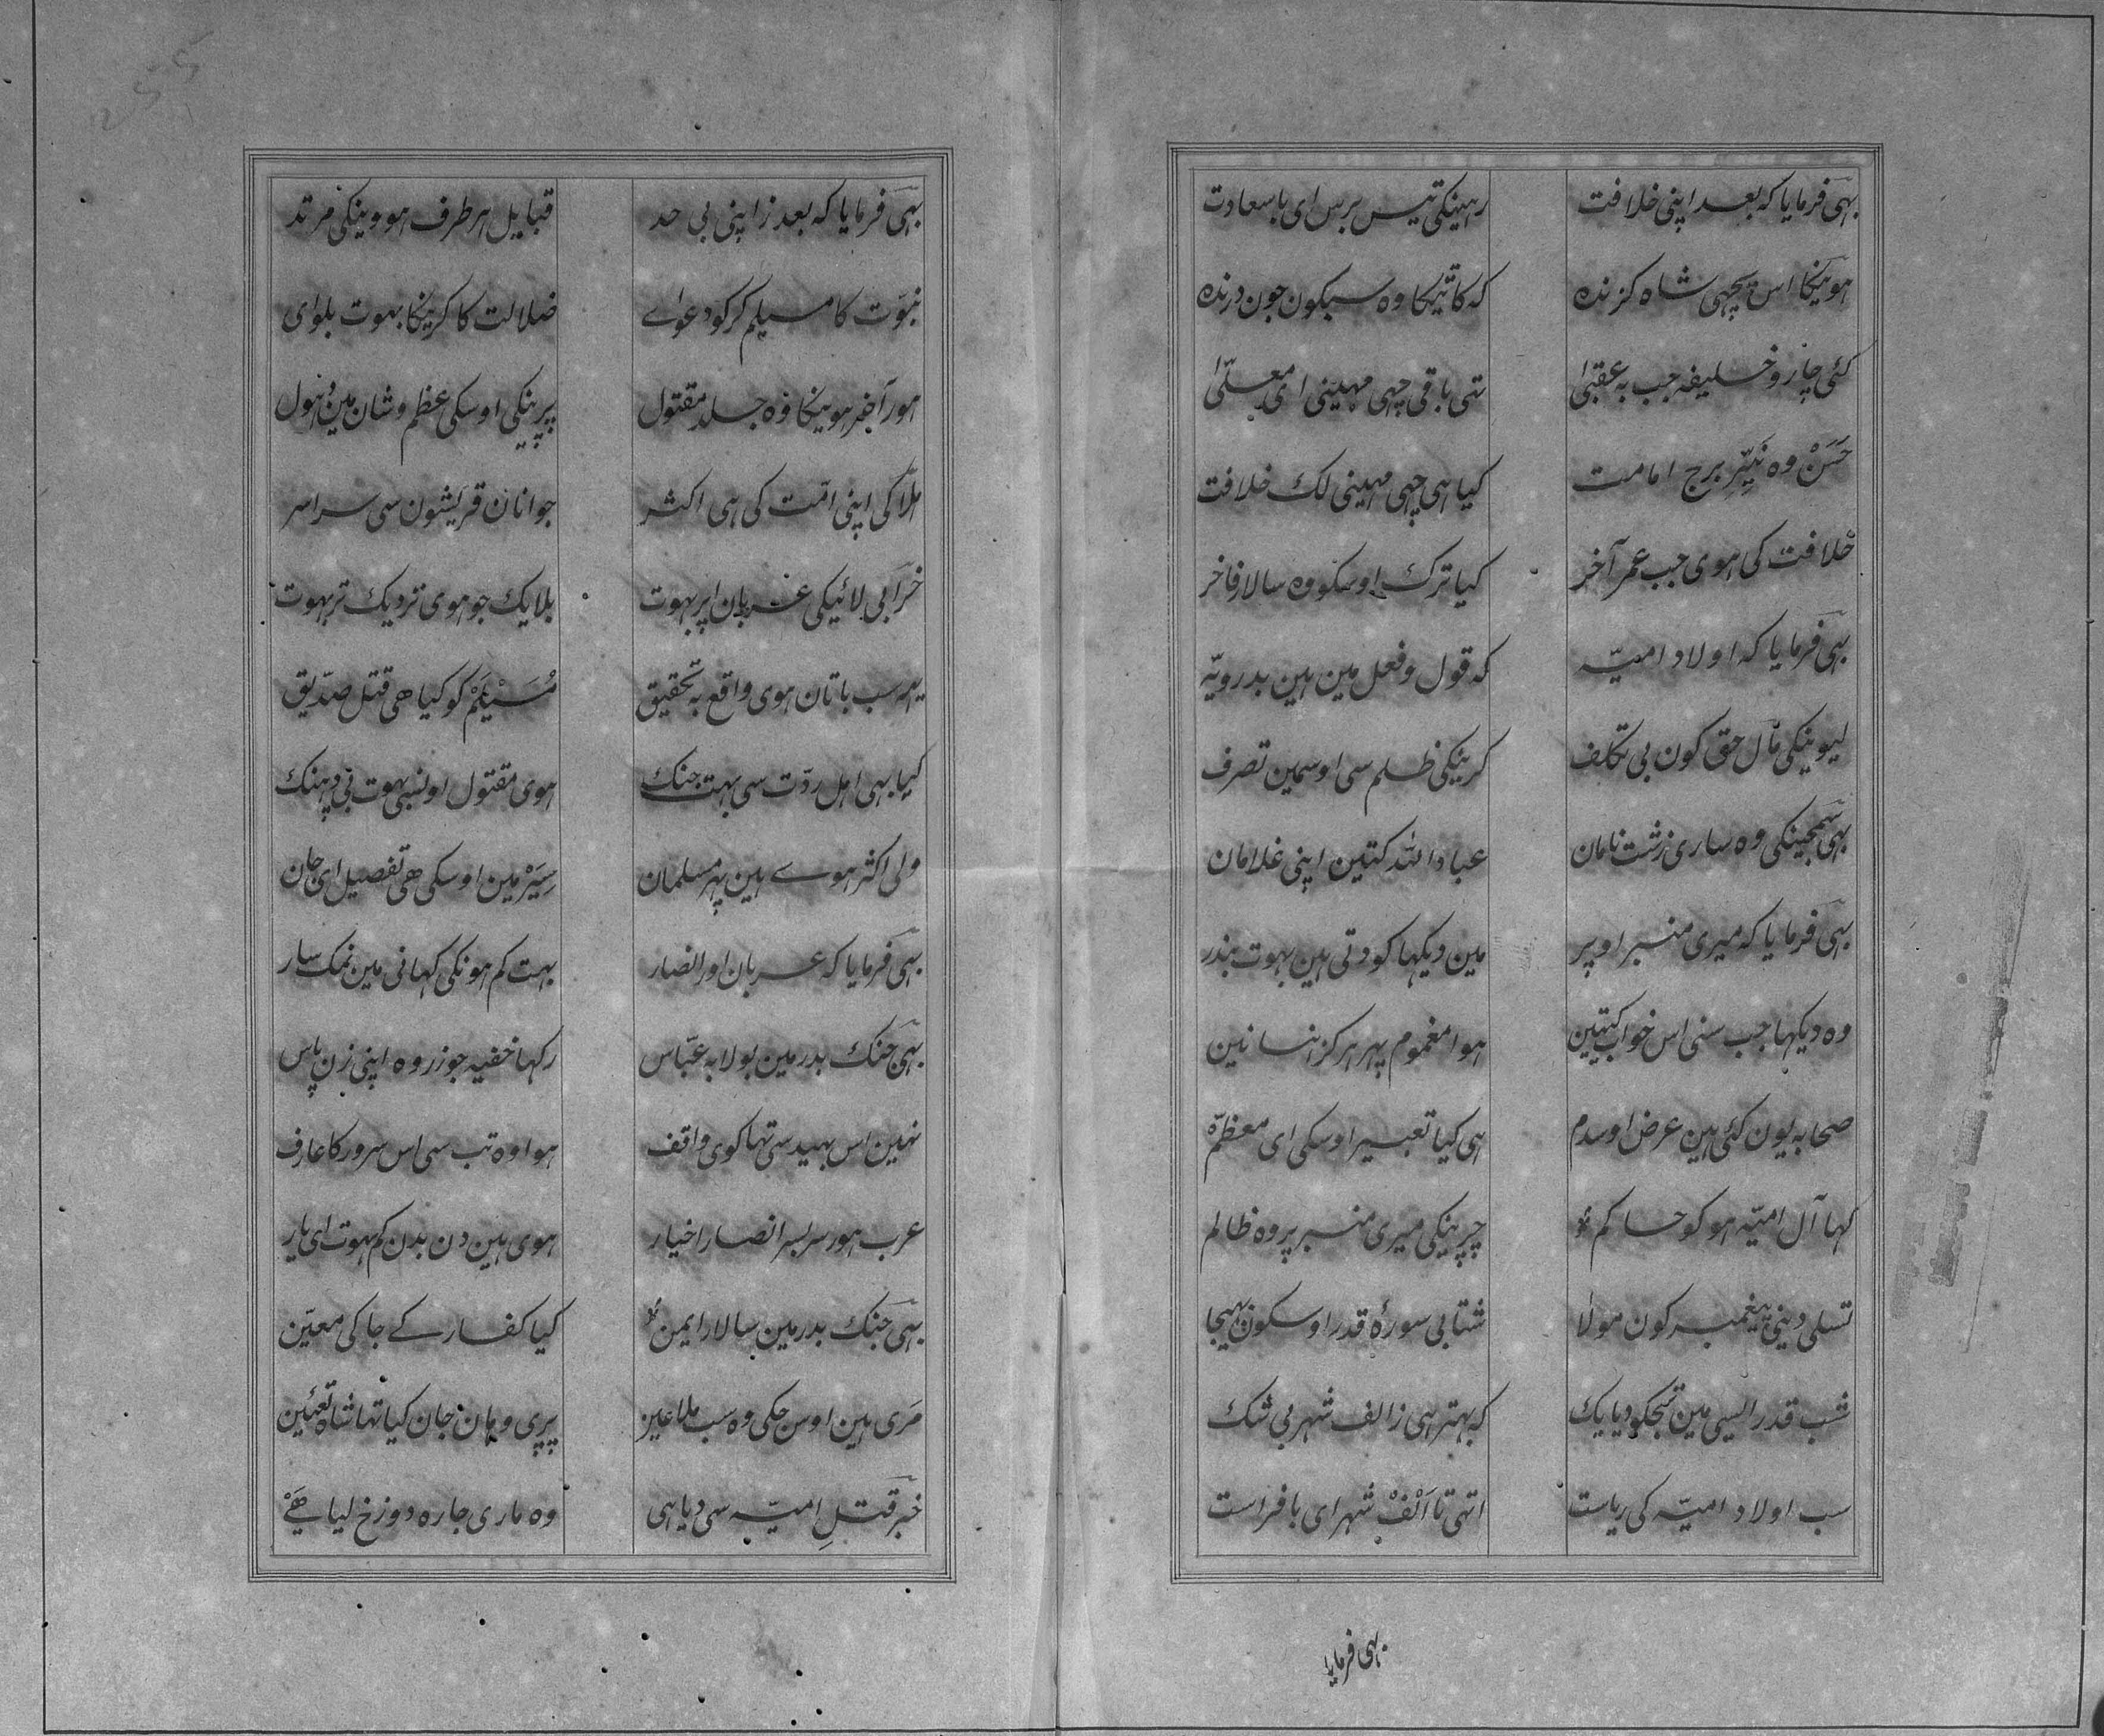 بہی فرمایا کہ بعد اپنی خلافت رہینگی تیس برس ای با سعادت
ہوینکا اس پچھی شاہ کزندہ کہ کاٹیکا وہ سبکون جون درندہ
کئی چارو خلیفہ جب بہ عقبیٰ تہی باقی چہی مہینی ای معلّیٰ
حَسَنْ وہ نَیّرِ برج امامت کیا ہی چہی مہینی لک خلافت
خلافت کی ہوی جب عمر آخر کیا ترک اوسکو وہ سالار فاخر
بہی فرمایا کہ اولاد امیّہ کہ قول و فعل مین ہین بد رویّہ
لیوینکی مال حق کون بی تکلف کرینکی ظلم سی اوسمین تصرف
بہی سَمجینکی وہ ساری زشت نامان عباد اللہ کتین اپنی غلامان
بہی فرمایا کہ میری منبر اوپر مین دیکہا کودتی ہین بہوت بندر
وہ دیکہا جب سنی اس خواب کیتین ہوا مغموم پہر ہرکز ہنسا نین
صحابہ یون کئی ہین عرض اوسدم ہی کیا تعبیر اوسکی ای معظم
کہا آل امیّہ ہو کو حاکم چڑینکی میری منبر پر وہ ظالم
تسلی دینی پیغمبر کون مولا شتابی سورۂ قدر اوسکون بہیجا
شب قدر ایسی مین تجکو دیا یک کہ بہتر ہی ز الف شہر بی شک
سب اولاد امیّہ کی ریاست اتہی تا اَلْفْ شہر ای با فراست
بہی فرمایا
بہی فرمایا کہ بعد ز اپنی بی حد قبایل ہر طرف ہووینکی مرتد
نبوّت کا مسیلم کر کو دعواے ضلالت کا کرینکا بہوت بلوای
ہور آخر ہوینکا وہ جلد مقتول پڑینکی اوسکی عظم و شان مین
ہلاکی اپنی امّت کی ہی اکثر جوانان قریشون سی سراسر
خرابی لائیکی عربان اپر بہوت بلا یک جو ہوی نزدیک تر بہوت
یہہ سب باتان ہوی واقع بہ تحقیق مُسَیْلَمْ کو کیا ہی قتل صدّیق
کیا بہی اہل ردّت سی بہت جنک ہوی مقتول اونسی بہوت
ولی اکثر ہوے ہین پہر مسلمان سِیَرْ مین اوسکی ہی تفصیل ای جان
بہی فرمایا کہ عربان اور انصار بہت کم ہونکی کہانی مین نمک سار
بہی جنک بدر مین بولا بہ عبّاس رکہا خفیہ جو زر وہ اپنی زن پاس
نہین اس بہید ستی تہا کوی واقف ہوا وہ تب سی اس سرور کا عارف
عرب ہور سر بسر انصار اخیار ہوی ہین دن بدن کم بہوت ای یار
بہی جنک بدر مین سالار ایمن کیا کفار کے جا کی معیّن
مری ہین اوس جکی وہ سب ملاعین پڑی وہان جان کیا تہا شاہ تعیین
خبر قتلِ امیّہ سی دیا ہی وہ ماری جا رہ دوزخ لیا ہے